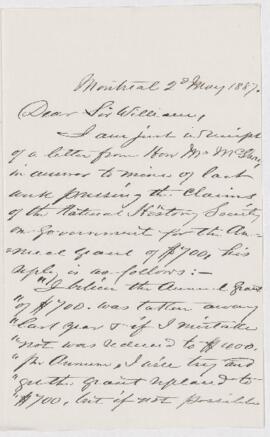 Montreal 2d May 1887.
Dear Sir William,
I am just in receipt
of a letter from Hon Mr
in answer to mine of last
week pressing the Claims
of the Natural History Society
on Government for the An-
nual grant of $700, his
reply is as follows:-
"I believe the Annual Grant
"of $700. was taken away
"last year & if I mistake
"not was reduced to $400.
"per Annum, I will try and
"get the grant replaced to
"$700, but if not possible